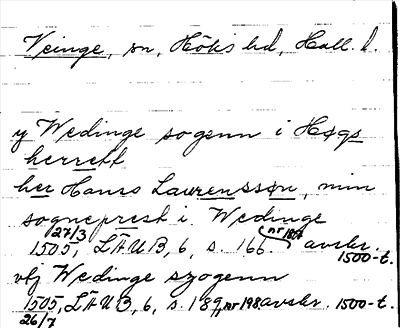 Veinge, sn, Höks hd, Hall. l.
y Wedinge sogenn i Høgs
herrett
her Hanss Laurenssøn, min
sogneprest i Wedinge
27/3 1505, LÄUB, 6, s. 166. nr 187 avskr. 1500-t.
vdj Wedinge szogenn
1505, LÄUB, 6, s. 189, nr 198 avskr. 1500-t.
26/7